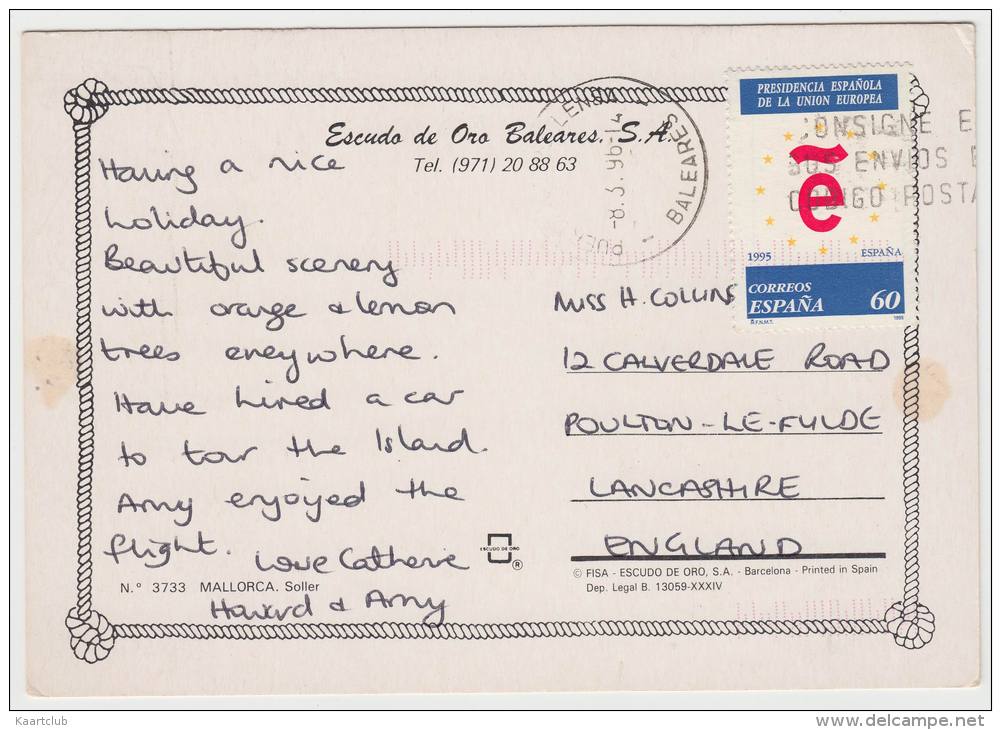 Escudo de Oro Baleares, S.A.
Tel. (971) 20 88 63
Having a nice
holiday.
Beautiful scenery
with orange & lemon
trees eneywhere.
Have hired a car
to tour the Island.
Amy enjoyed the
flight.
Love Catherie
Howard & Amy
N.º 3733 MALLORCA. Soller
ESCUDO DE ORO
®
BALEARES
PRESIDENCIA ESPAÑOLA
DE LA UNION EUROPEA
ẽ
1995 ESPAÑA
CORREOS
ESPAÑA 60
R.F.N.M.T. 1995
CONSIGNE E
SUS ENVIOS
CODIGO POSTA
MISS H. COLLINS
12 CALVERDALE ROAD
POULTON-LE-FYLDE
LANCASHIRE
ENGLAND
© FISA - ESCUDO DE ORO, S.A. - Barcelona - Printed in Spain
Dep. Legal B. 13059-XXXIV
Kaartclub
delcampe.net